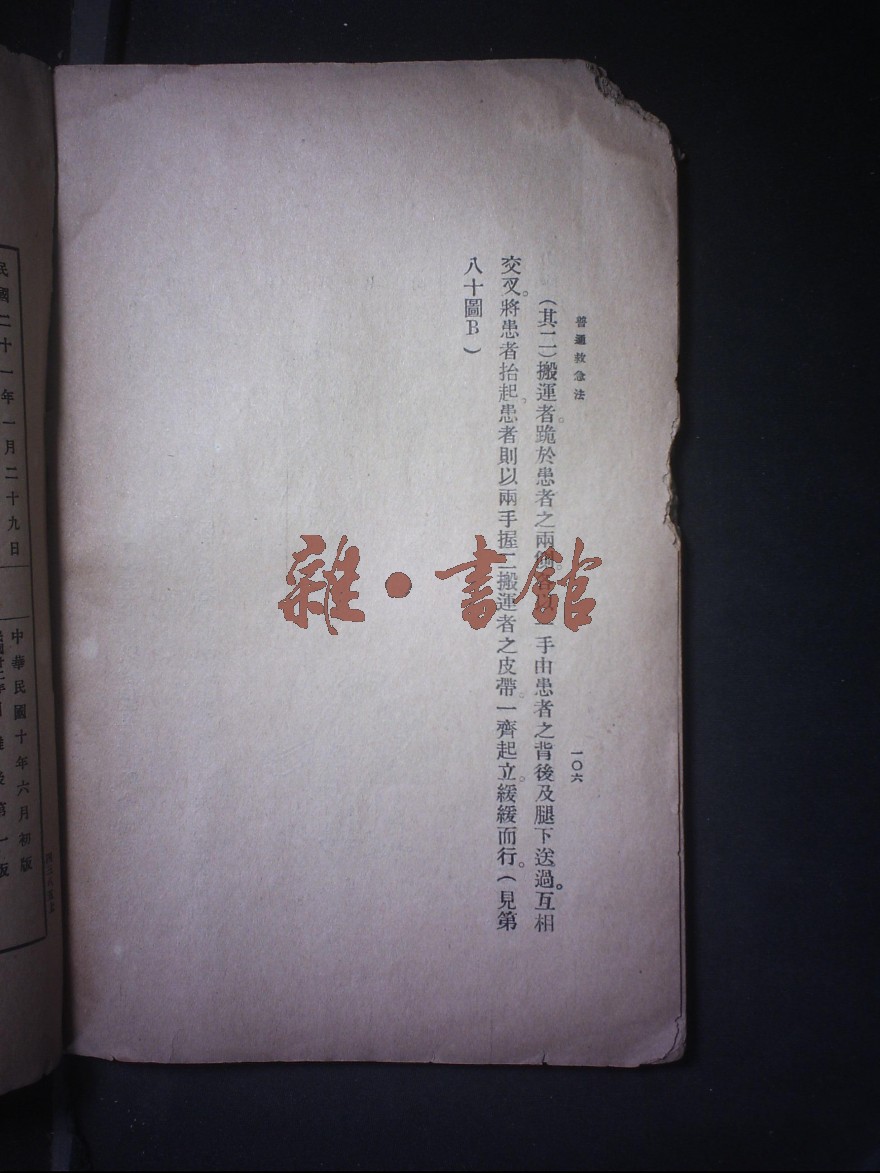 普通救急法
一〇六
(其二)搬運者。跪於患者之兩側。各以一手由患者之背後及腿下送過。互相
交叉。將患者抬起。患者則以兩手握二搬運者之皮帶。一齊起立。緩緩而行。(見第
八十圖B)
雜·書館
中華民國十年六月初版
民國二十一年一月二十九日